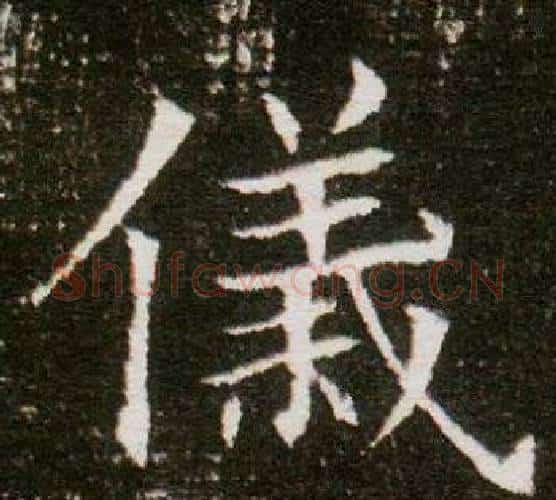 儀
Shufawang.CN